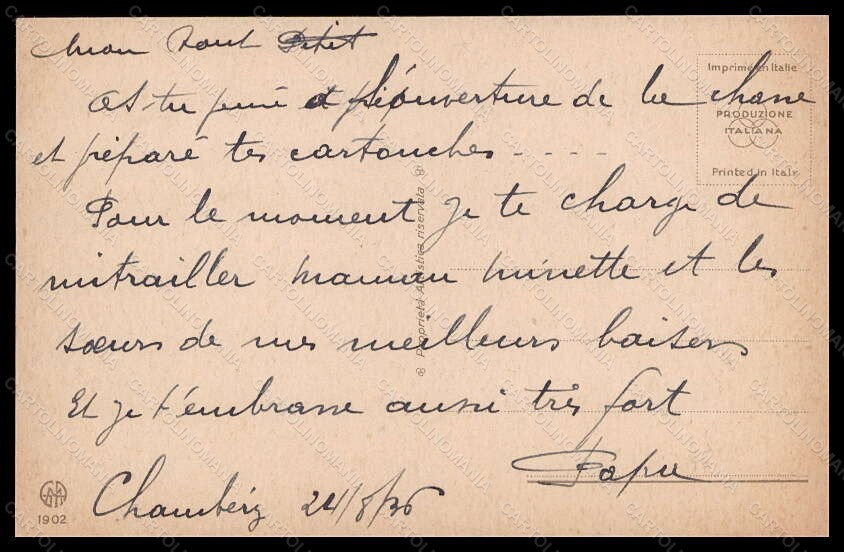 Mon Tout Petit
As-tu pensé à l'ouverture de la chasse
et préparé tes cartouches - - - -
Pour le moment je te charge de
mitrailler maman minette et les
sœurs de mes meilleurs baisers
Et je t'embrasse aussi très fort
Papa
Chambéry 24/8/36
Imprimé en Italie
PRODUZIONE
ITALIANA
Printed in Italy
Proprietà Artistica riservata
1902
CARTOLINOMANIA